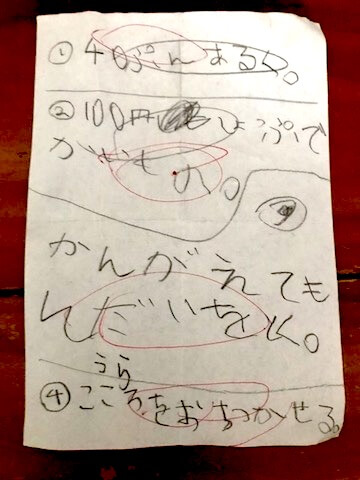 ① 40ぷんあるく。
② 100円しょぷで
かいもの。
③
かんがえても
んだいをとく。
うら
④ こころをおちつかせる。